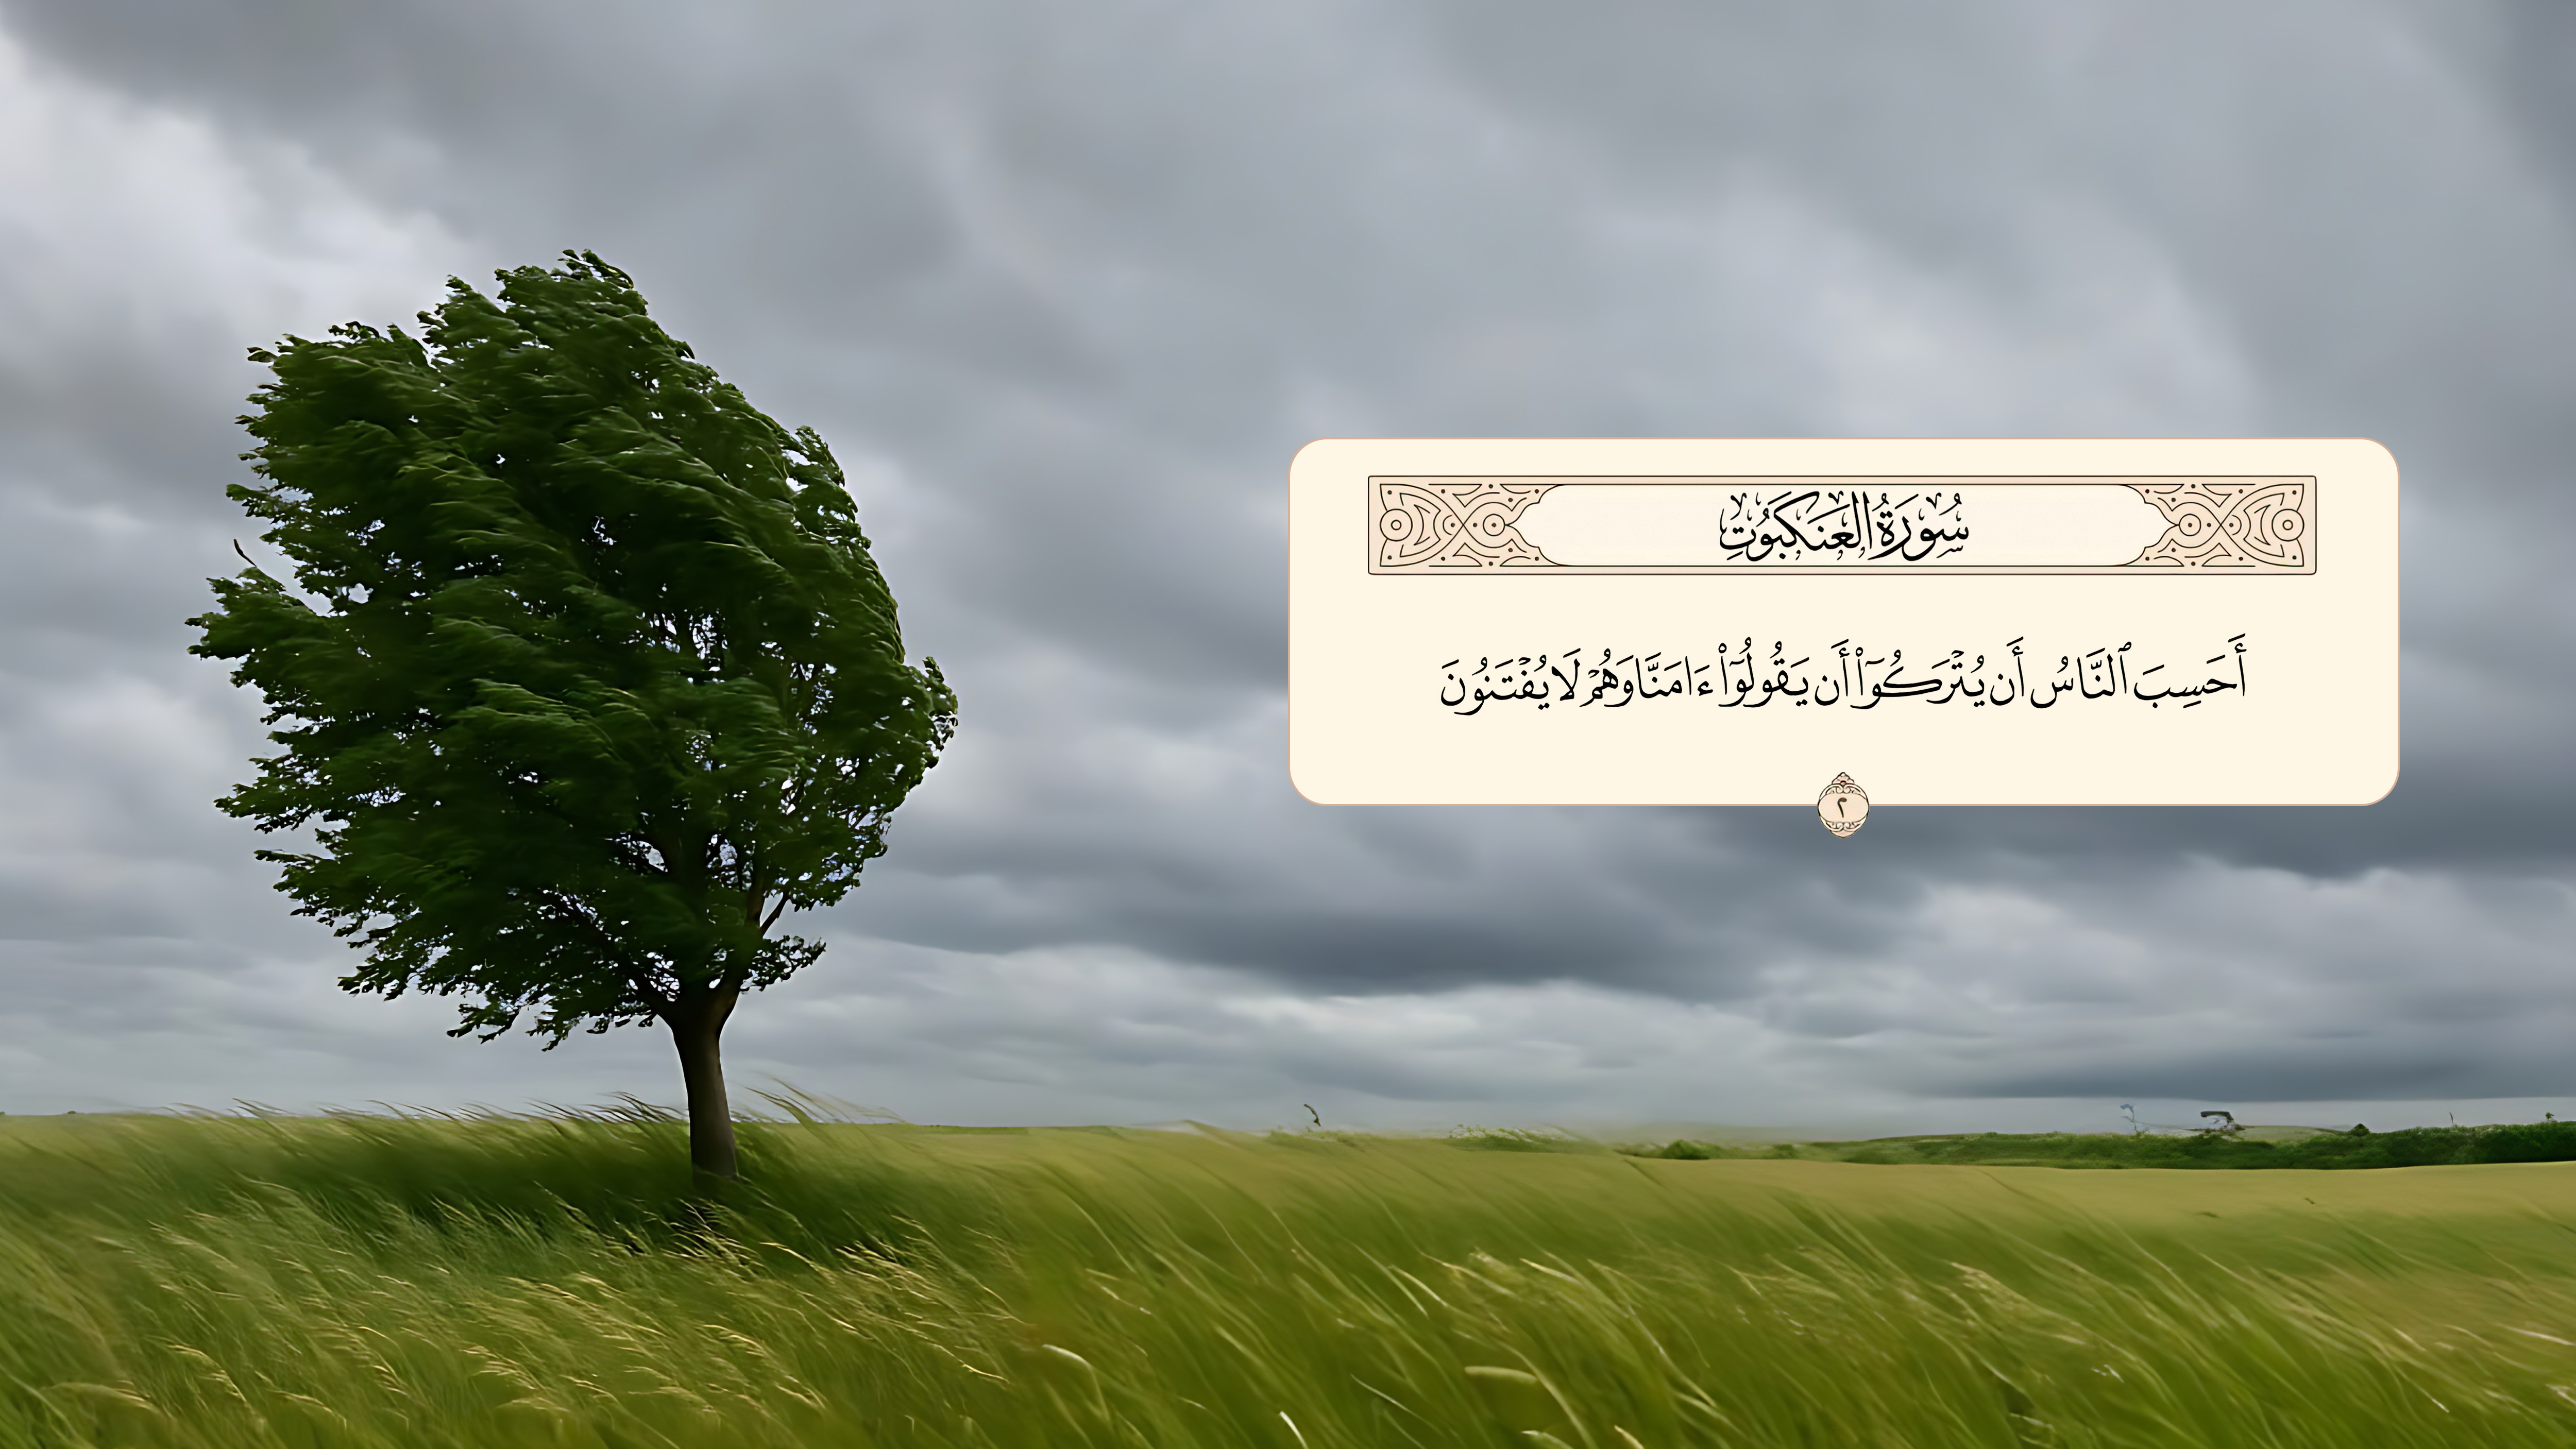 سُورَةُ العَنكَبُوتِ
أَحَسِبَ ٱلنَّاسُ أَن يُتْرَكُوٓا۟ أَن يَقُولُوٓا۟ ءَامَنَّا وَهُمْ لَا يُفْتَنُونَ
٢